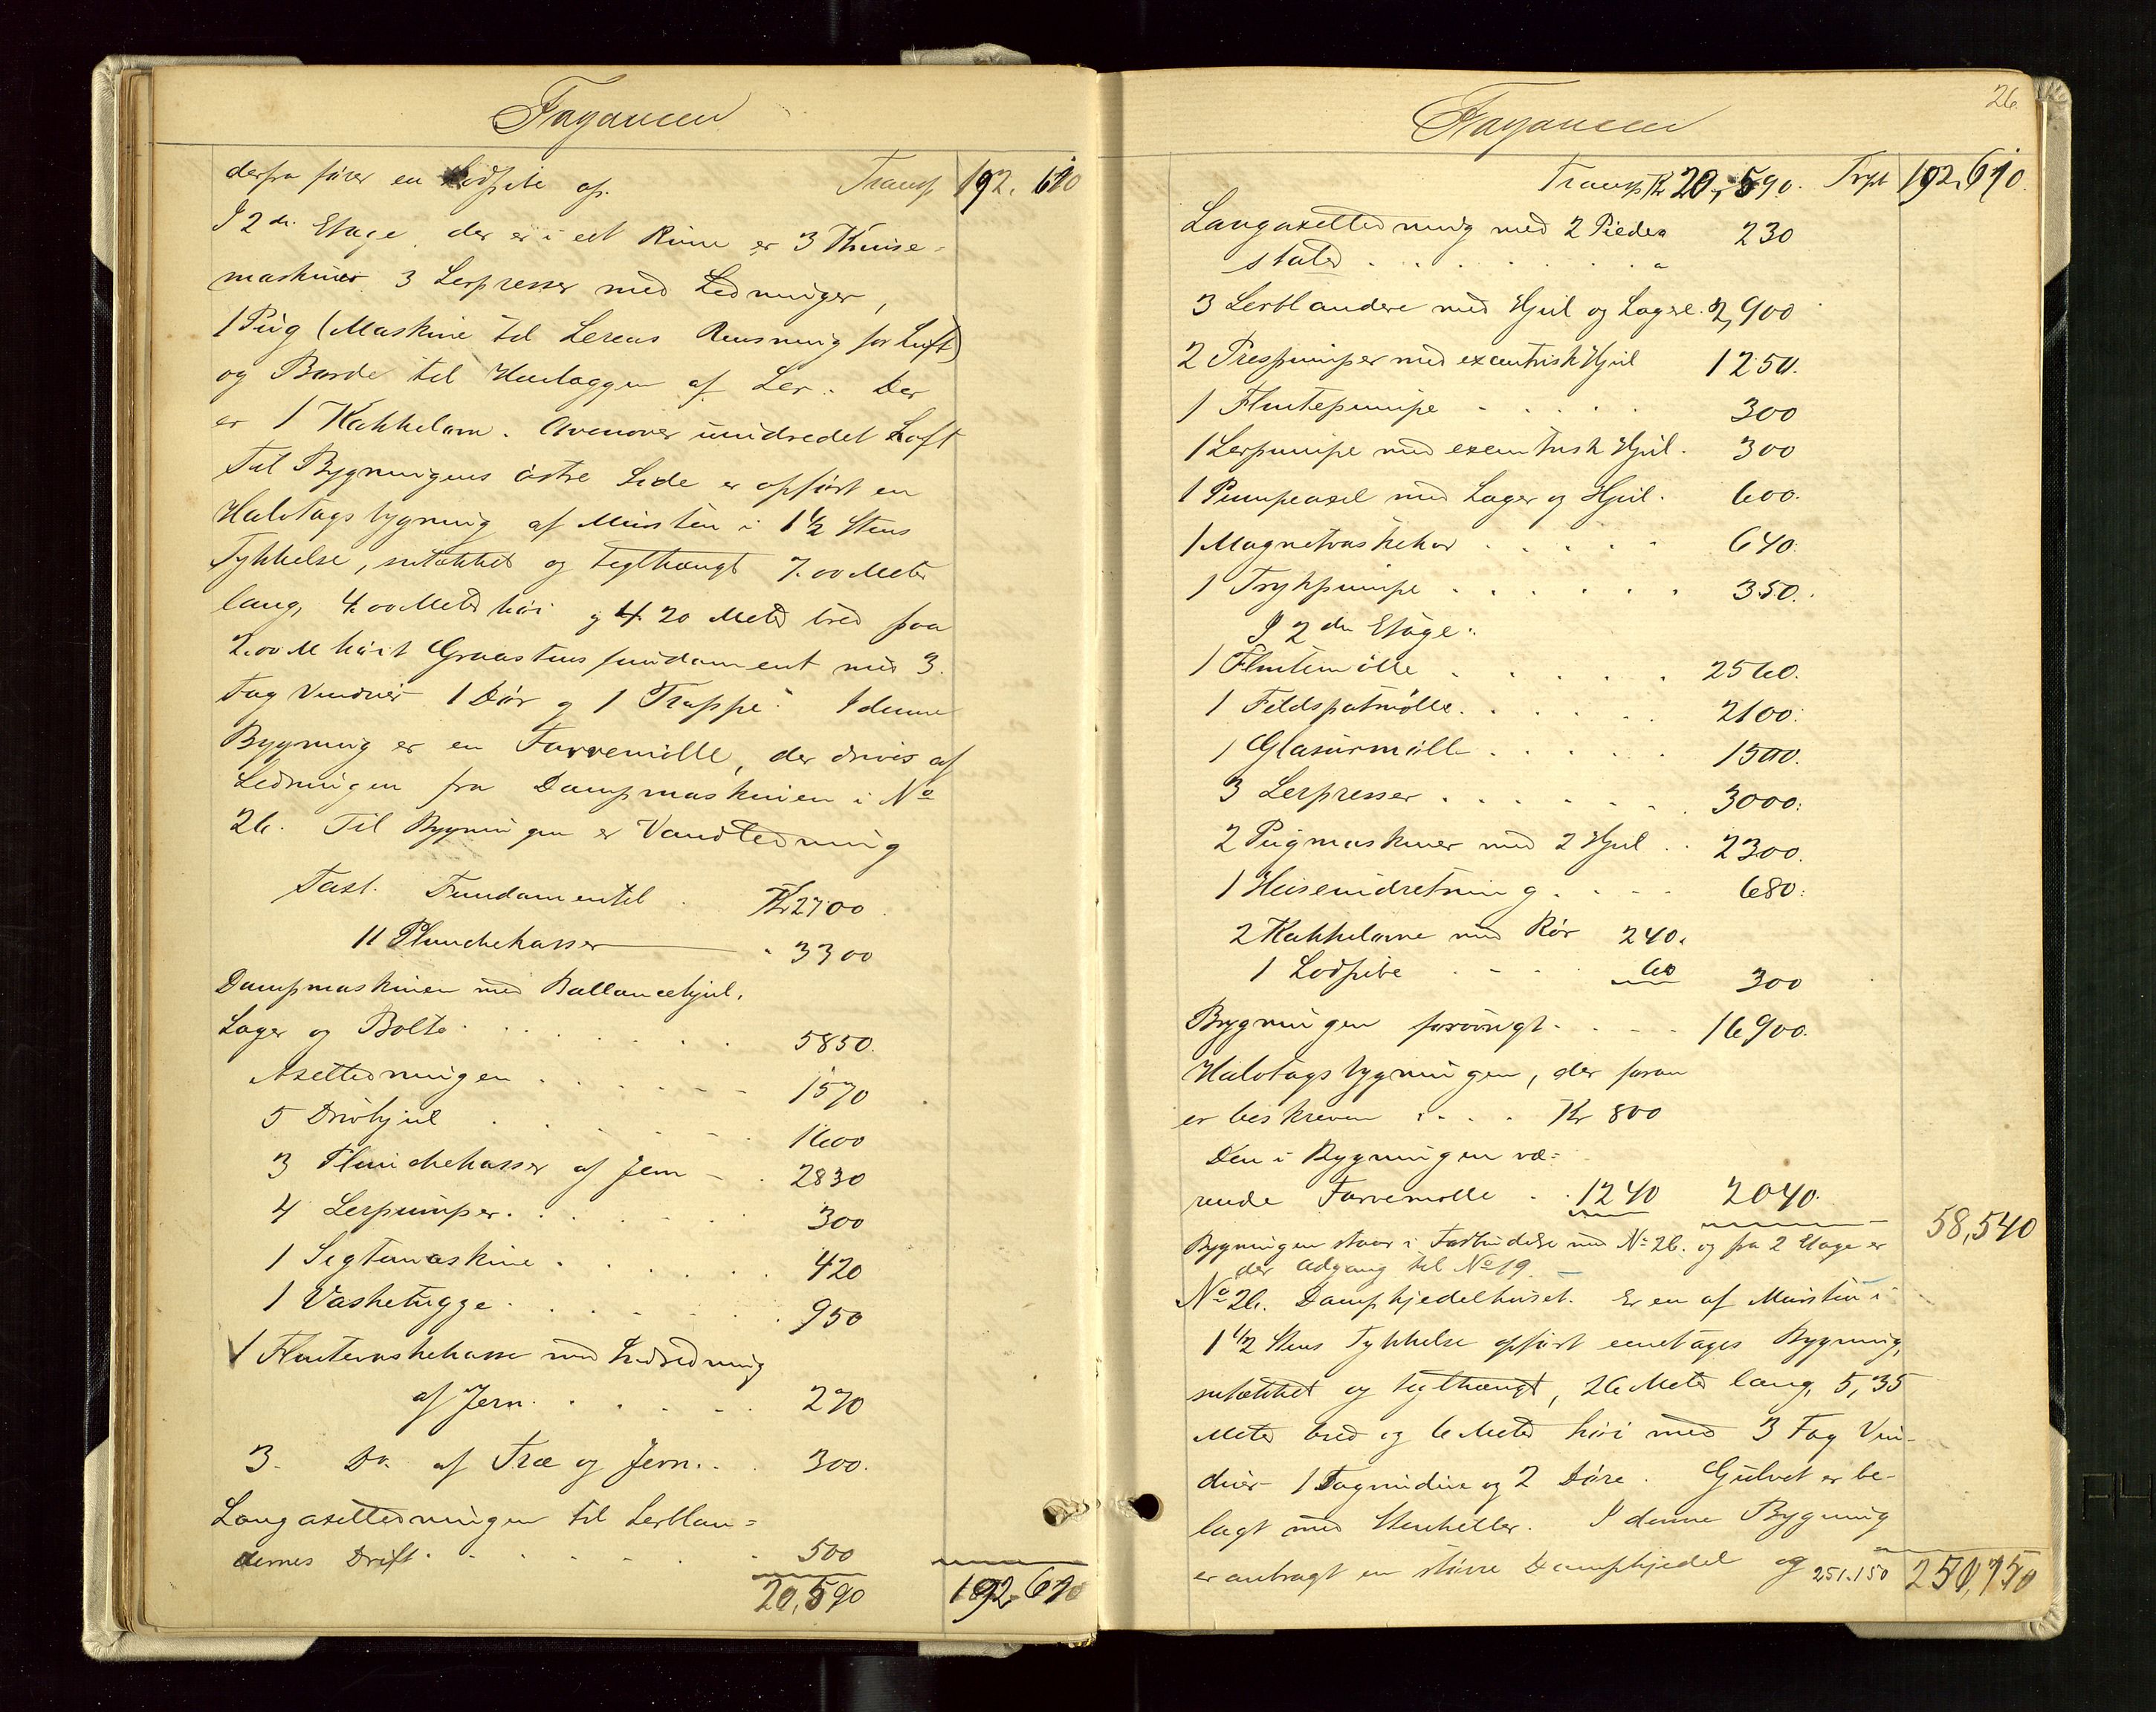 Fayancen
derfra fører en Lodpibe op. Transp 192.610
I 2den Etage, der er i eet Rum er 3 Knuse-
maskiner 3 Lerpresser med Ledninger,
1 Pug (Maskine til Lerens Rensning for Luft)
og Borde til Henlæggen af Ler. Der
er 1 Kakkelovn. Ovenover uindredet Loft
Til Bygningens østre Side er opført en
Halvtagsbygning af Mursten i 1 1/2 Stens
Tykkelse, sutækket og teglhængt 7.00 Meter
lang, 4.00 Meter høi og 4.20 Meter bred paa
2.00 M høit Graastensfundament med 3
Fag Vinduer 1 Dør og 1 Trappe. I denne
Bygning er en Farvemølle, der drives af
Ledningen fra Dampmaskinen i No
26. Til Bygningen er Vandledning
Taxt. Fundamentet Kr 2700
11 Plunchekasser " 3300
Dampmaskinen med Ballancehjul,
Lager og Bolte . . . 5850.
Axelledningen . . . 1570
5 Drivhjul . . . 1600
3 Plunchekasser af Jern - . 2830
4 Lerpumper . . . 300
1 Sigtemaskine . . . 420
1 Vasketrugge . . . 950
1 Flintevaskekasse med Indredning
af Jern . . . 270
3. Do. af Træ og Jern . . 300.
Langaxelledningen til Lerblan=
dernes Drift . . . 500
20,590 192.610
26.
Fayancen
Transp Kr 20,590. Trpt 192,610.
Langaxelledning med 2 Piedes 230
staler . . . "
3 Lerblandere med Hjul og Lager. 2,900
2 Prespumper med excentrisk Hjul 1250.
1 Flintepumpe . . . 300
1 Lerpumpe med excentrisk Hjul. 300
1 Pumpeaxel med Lager og Hjul. 600.
1 Magnetvaskekar . . . 640.
1 Trykpumpe . . . 350.
I 2den Etage:
1 Flintemølle . . . 2560.
1 Feldspatmølle . . . 2100.
1 Glasurmølle . . . 1500.
3 Lerpresser . . . 3000.
2 Pugmaskiner med 2 Hjul . . 2300.
1 Heiseindretning . . . 680.
2 Kakkelovne med Rør 240.
1 Lodpibe . . . 60 300
Bygningen forøvrigt . . . 16900.
Halvtagsbygningen, der foran
er beskreven . . . Kr 800
Den i Bygningen væ=
rende Farvemølle . . 1240 2040.
58,540
Bygningen staar i Forbindelse med No 26. og fra 2 Etage er
der Adgang til No 19.
No 26. Dampkjedelhuset. Er en af Mursten i
1 1/2 Stens Tykkelse opført eenetages Bygning,
sutækket og teglhængt, 26 Meter lang, 5,35
Meter bred og 6 Meter høi med 3 Fag Vin-
duer 1 Tagvindue og 2 Døre. Gulvet er be-
lagt med Stenheller. I denne Bygning
er anbragt en større Dampkjedel og 251.150 250,750